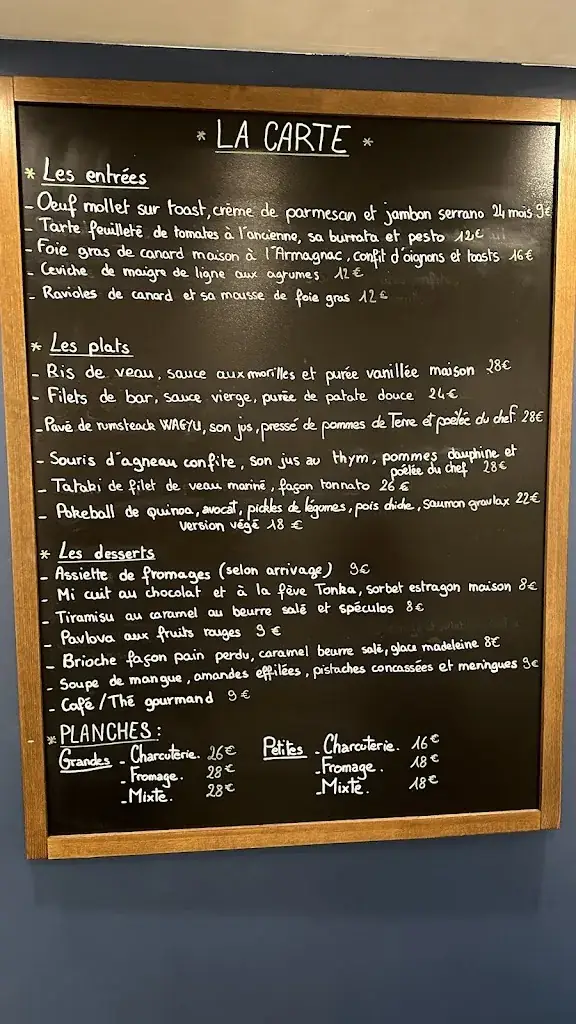 * LA CARTE *
* Les entrées
- Oeuf mollet sur toast, crème de parmesan et jambon serrano 24 mois 9€
- Tarte feuilleté de tomates à l'ancienne, sa burrata et pesto 12€
- Foie gras de canard maison à l'Armagnac, confit d'oignons et toasts 16€
- Ceviche de maigre de ligne aux agrumes 12€
- Ravioles de canard et sa mousse de foie gras 12€
* Les plats
- Ris de veau, sauce aux morilles et purée vanillée maison 28€
- Filets de bar, sauce vierge, purée de patate douce 24€
- Pavé de rumsteack WAGYU, son jus, pressé de pommes de Terre et poêlée du chef. 28€
- Souris d'agneau confite, son jus au thym, pommes dauphine et
poêlée du chef 28€
- Tataki de filet de veau mariné, façon tonnato 26€
- Pokeball de quinoa, avocat, pickles de légumes, pois chiche, saumon gravlax 22€
version végé 18€
* Les desserts
- Assiette de fromages (selon arrivage) 9€
- Mi cuit au chocolat et à la fève Tonka, sorbet estragon maison 8€
- Tiramisu au caramel au beurre salé et spéculos 8€
- Pavlova aux fruits rouges 9€
- Brioche façon pain perdu, caramel beurre salé, glace madeleine 8€
- Soupe de mangue, amandes effilées, pistaches concassées et meringues 9€
- Café/Thé gourmand 9€
* PLANCHES:
Grandes - Charcuterie. 26€ Petites - Charcuterie. 16€
- Fromage. 28€ - Fromage. 18€
- Mixte. 28€ - Mixte. 18€